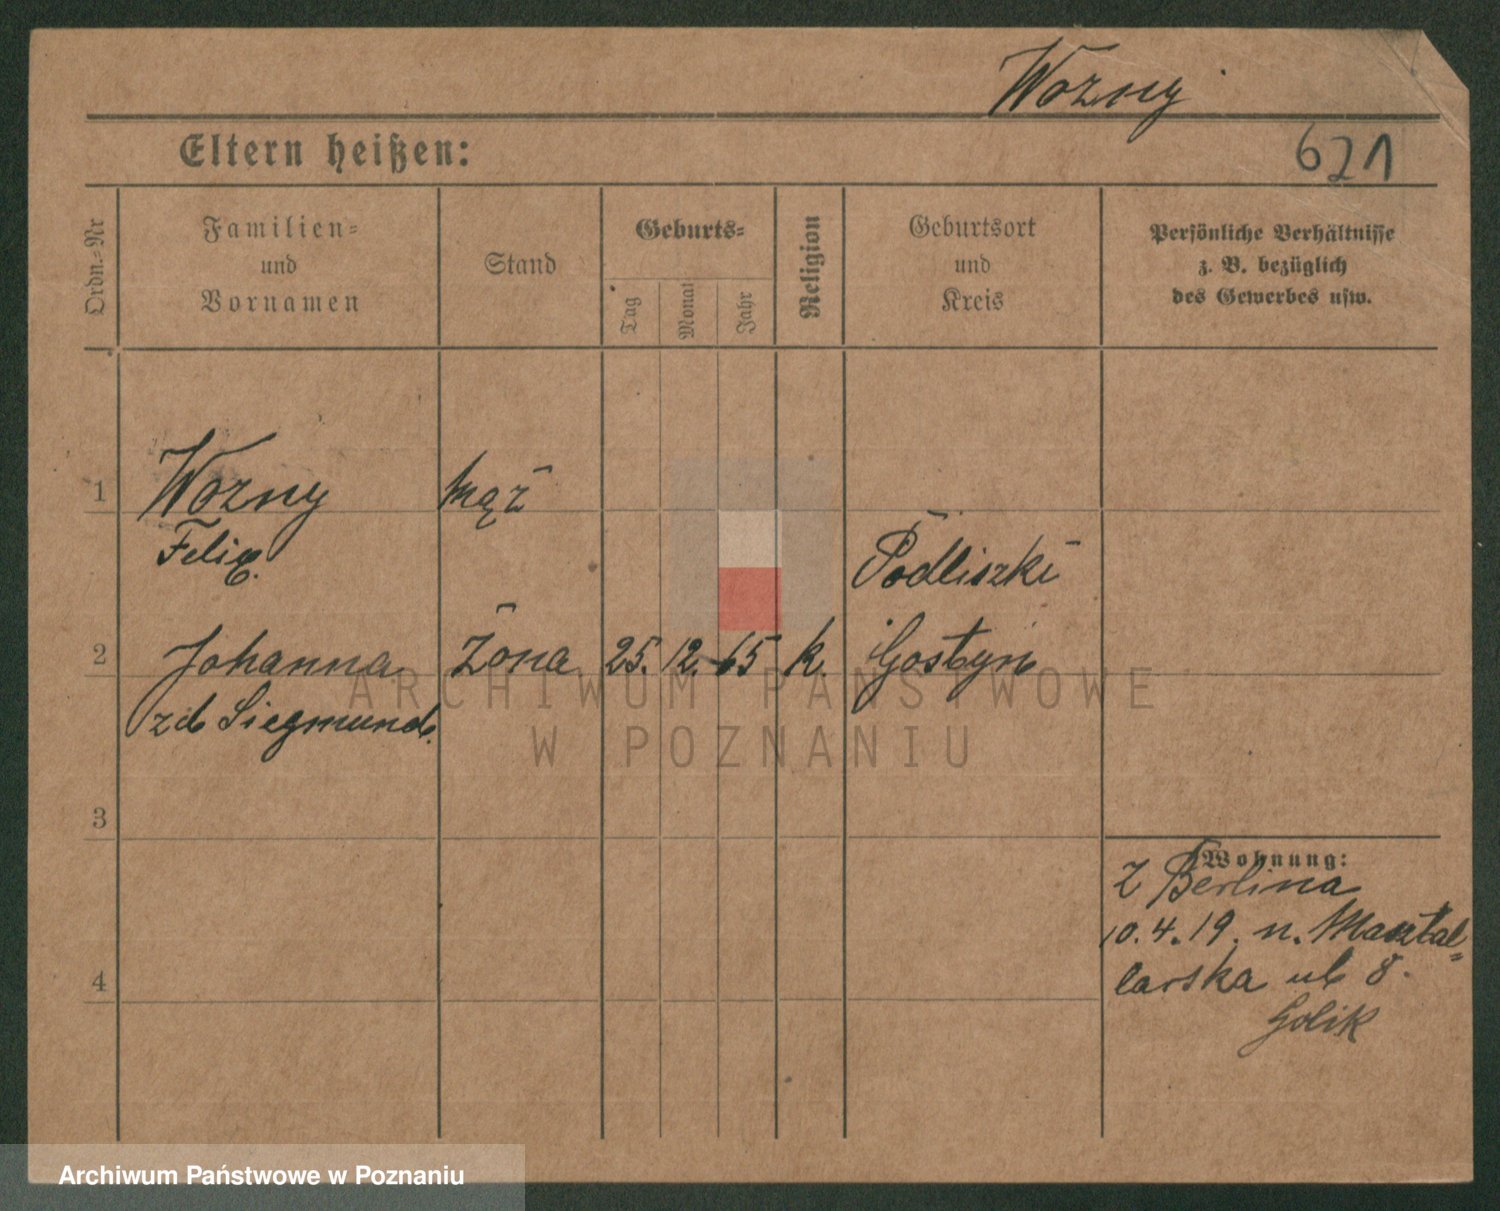 Wozny
Eltern heißen:
621
Ordn.-Nr
Familien-
und
Vornamen
Stand
Geburts-
Tag
Monat
Jahr
Religion
Geburtsort
und
Kreis
Persönliche Verhältnisse
z. B. bezüglich
des Gewerbes usw.
1
Wozny
mąż
Felix.
Podliszki
2
Johanna
żona
25.
12.
65
k.
Gostyń
zd Siegmund.
ARCHIWUM PAŃSTWOWE
W POZNANIU
3
Wohnung:
Z Berlina
10.4.19. n. Masztal=
larska ul 8.
Golik
4
Archiwum Państwowe w Poznaniu